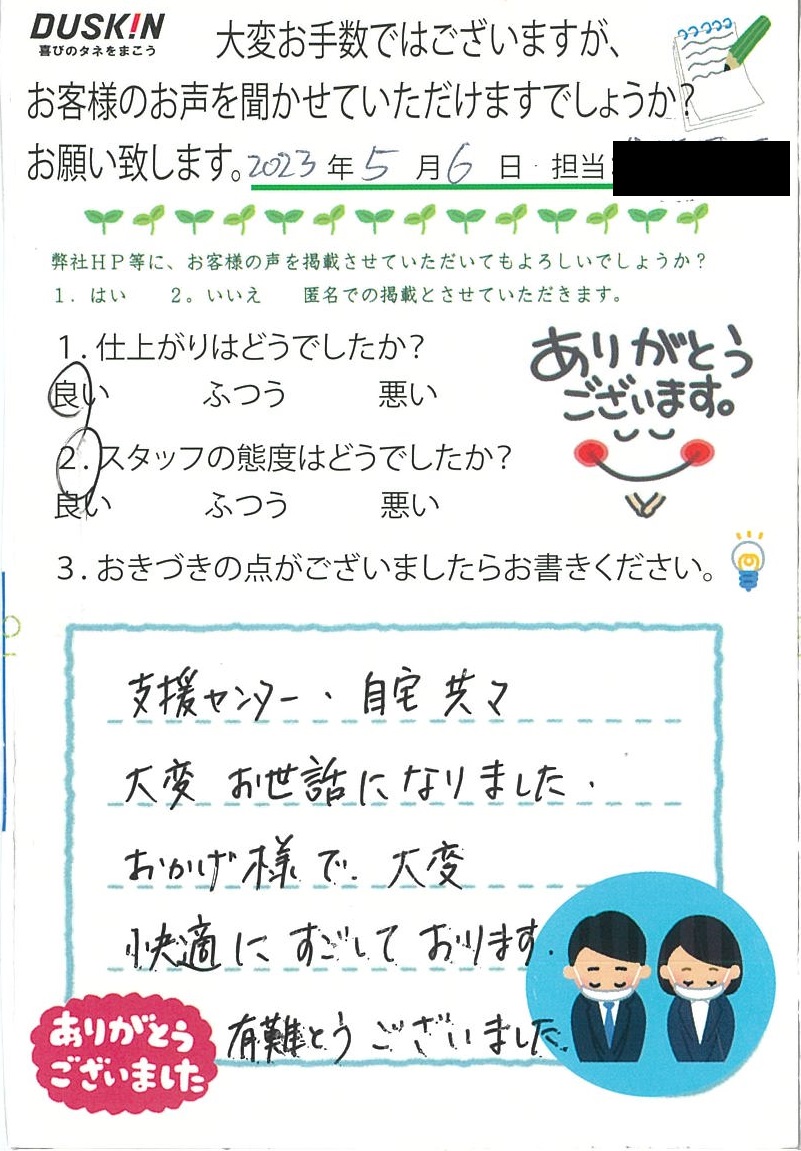 DUSKIN
喜びのタネをまこう
大変お手数ではございますが、
お客様のお声を聞かせていただけますでしょうか?
お願い致します。2023年5月6日 担当:
弊社HP等に、お客様の声を掲載させていただいてもよろしいでしょうか?
1. はい 2。いいえ 匿名での掲載とさせていただきます。
1. 仕上がりはどうでしたか?
良い ふつう 悪い
ありがとう
ございます。
2. スタッフの態度はどうでしたか?
良い ふつう 悪い
3. おきづきの点がございましたらお書きください。
支援センター・自宅共々
大変お世話になりました.
おかげ様で.大変
快適にすごしております.
有難とうございました.
ありがとう
ございました